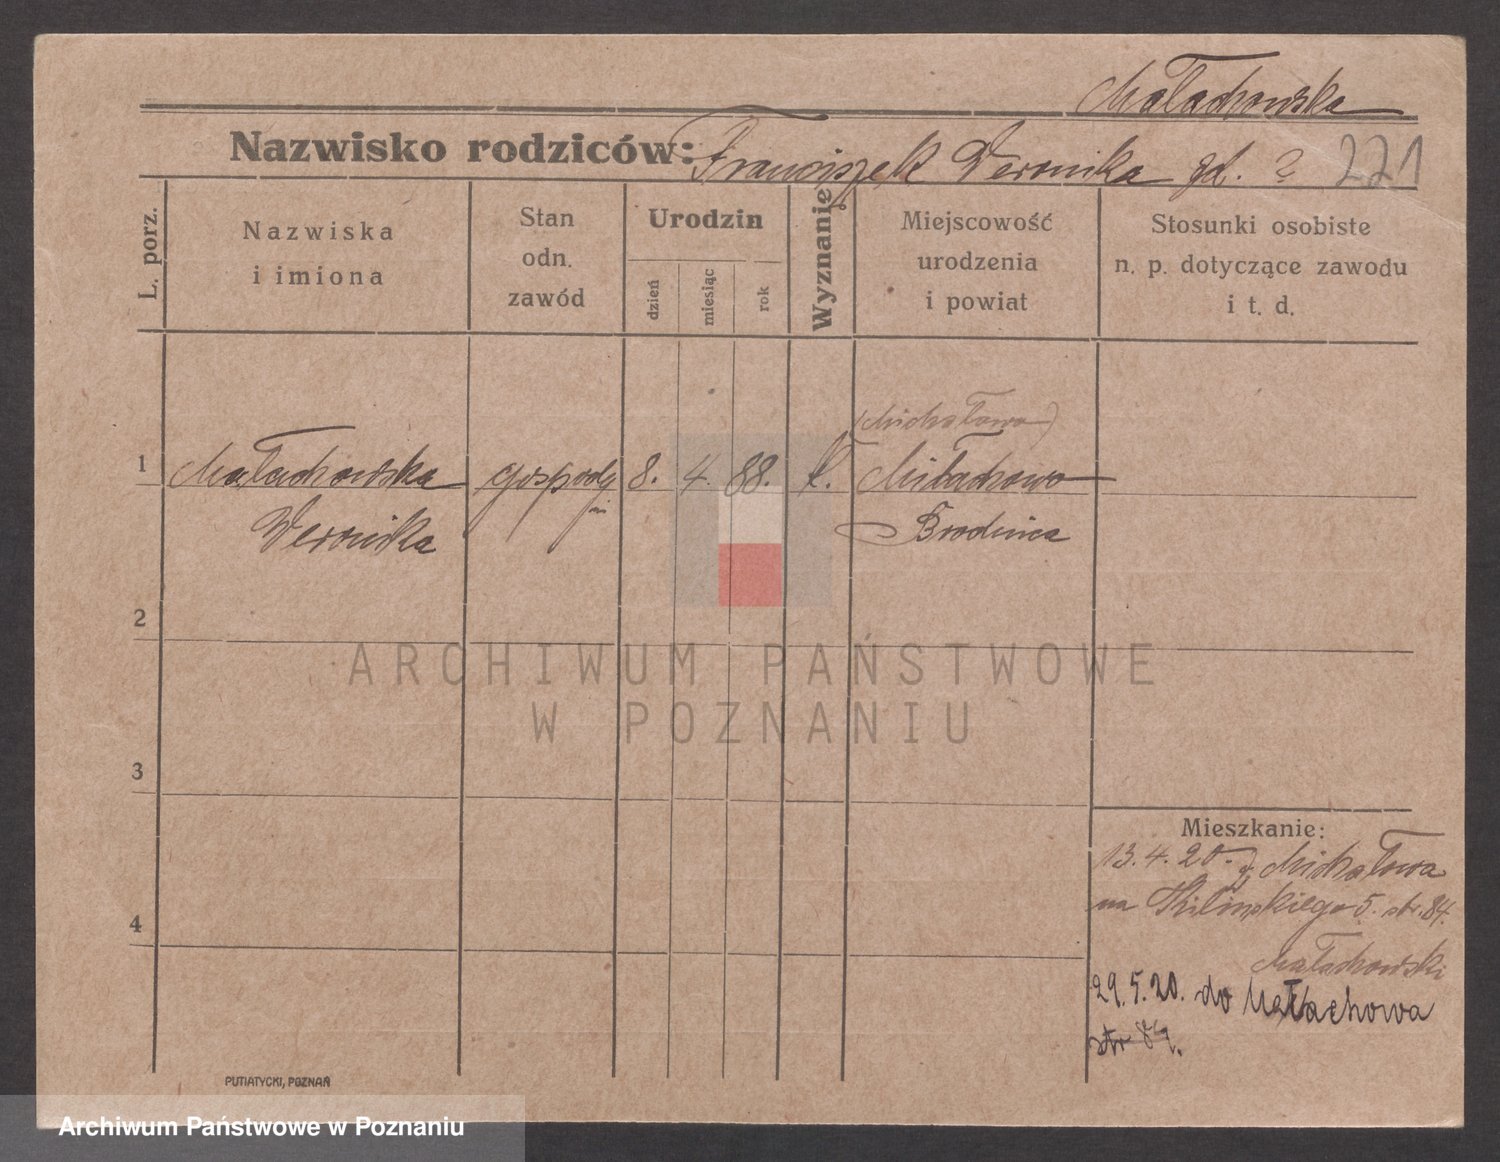 Małachowska
Nazwisko rodziców: Franciszek Weronika zd. ? 221
L. porz.
Nazwiska
i imiona
Stan
odn.
zawód
Urodzin
dzień
miesiąc
rok
Wyznanie
Miejscowość
urodzenia
i powiat
Stosunki osobiste
n. p. dotyczące zawodu
i t. d.
(Michałowo)
1 Małachowska gospody 8. 4. 88. k.
Weronika Brodnica
2
ARCHIWUM PAŃSTWOWE
W POZNANIU
3
Mieszkanie:
13.4.20. z Michałowa
na Kilińskiego 5. str. 84.
4
Małachowski
29.5.20. do Małachowa
str 84.
PUTIATYCKI, POZNAŃ
Archiwum Państwowe w Poznaniu